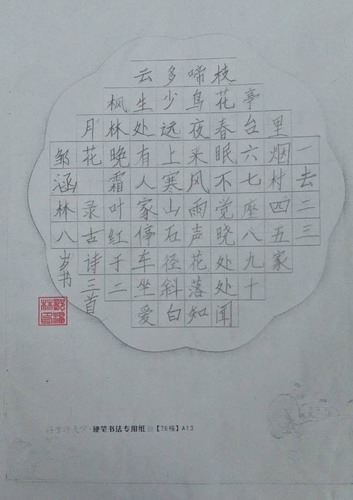 一去二三
里烟村四五家
亭台六七座八九十
枝花春眠不觉晓处处闻
啼鸟夜来风雨声花落知
多少远上寒山石径斜白
云生处有人家停车坐爱
枫林晚霜叶红于二
月花 录古诗三首
邹涵林八岁书
硬笔书法专用纸 【76稿】A13